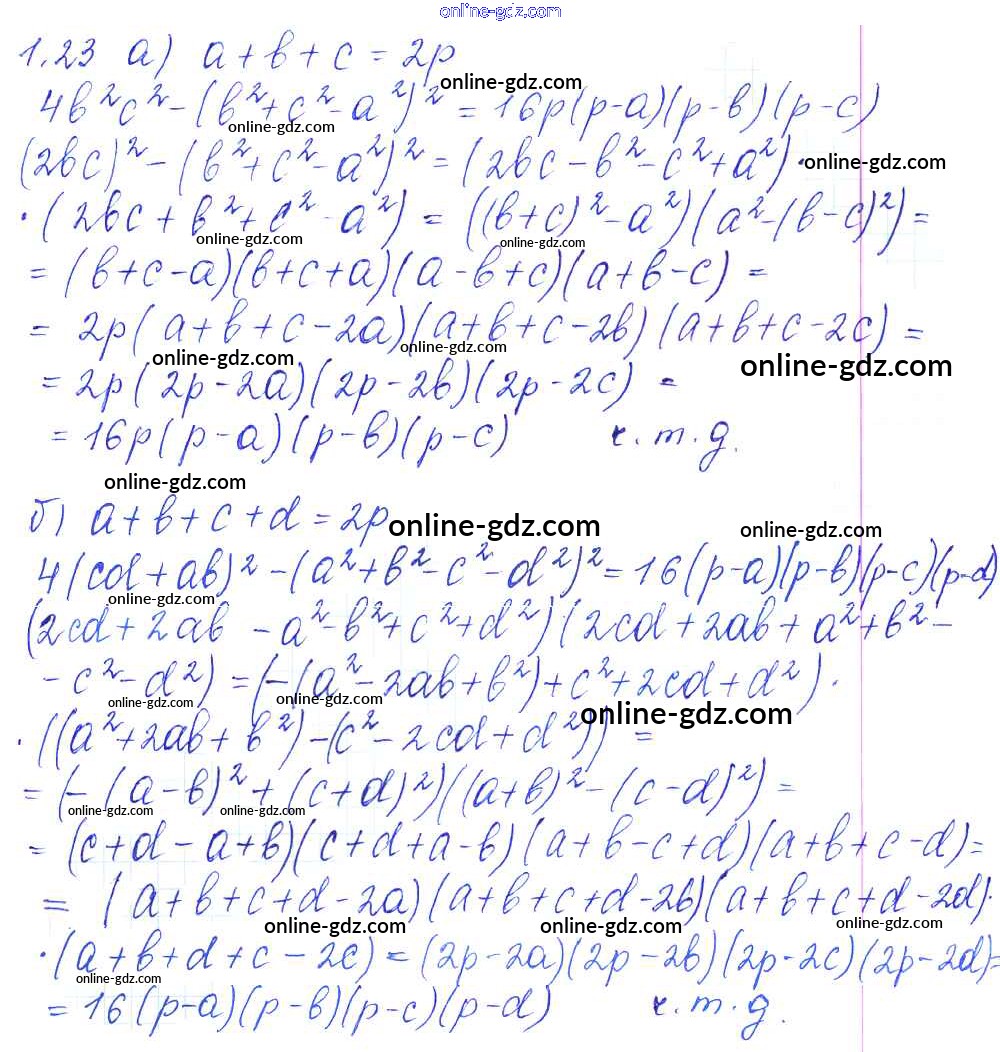 online-gdz.com
1.23 а) a + b + c = 2p
online-gdz.com
4b²c² - (b² + c² - a²)² = 16p(p-a)(p-b)(p-c)
online-gdz.com
(2bc)² - (b² + c² - a²)² = (2bc - b² - c² + a²) ·
online-gdz.com
· (2bc + b² + c² - a²) = ((b+c)² - a²)(a² - (b-c)²) =
online-gdz.com online-gdz.com
= (b+c-a)(b+c+a)(a-b+c)(a+b-c) =
= 2p(a+b+c-2a)(a+b+c-2b)(a+b+c-2c) =
online-gdz.com online-gdz.com online-gdz.com
= 2p(2p-2a)(2p-2b)(2p-2c) =
= 16p(p-a)(p-b)(p-c) ч.т.д.
online-gdz.com
б) a + b + c + d = 2p
online-gdz.com online-gdz.com
4(cd+ab)² - (a²+b²-c²-d²)² = 16(p-a)(p-b)(p-c)(p-d)
online-gdz.com
(2cd + 2ab - a² - b² + c² + d²)(2cd + 2ab + a² + b² -
- c² - d²) = (-(a² - 2ab + b²) + c² + 2cd + d²) ·
online-gdz.com online-gdz.com online-gdz.com
· ((a² + 2ab + b²) - (c² - 2cd + d²)) =
= (-(a-b)² + (c+d)²)((a+b)² - (c-d)²) =
online-gdz.com online-gdz.com
= (c+d-a+b)(c+d+a-b)(a+b-c+d)(a+b+c-d) =
= (a+b+c+d-2a)(a+b+c+d-2b)(a+b+c+d-2d) ·
online-gdz.com online-gdz.com online-gdz.com
· (a+b+d+c-2c) = (2p-2a)(2p-2b)(2p-2c)(2p-2d) =
online-gdz.com
= 16(p-a)(p-b)(p-c)(p-d) ч.т.д.